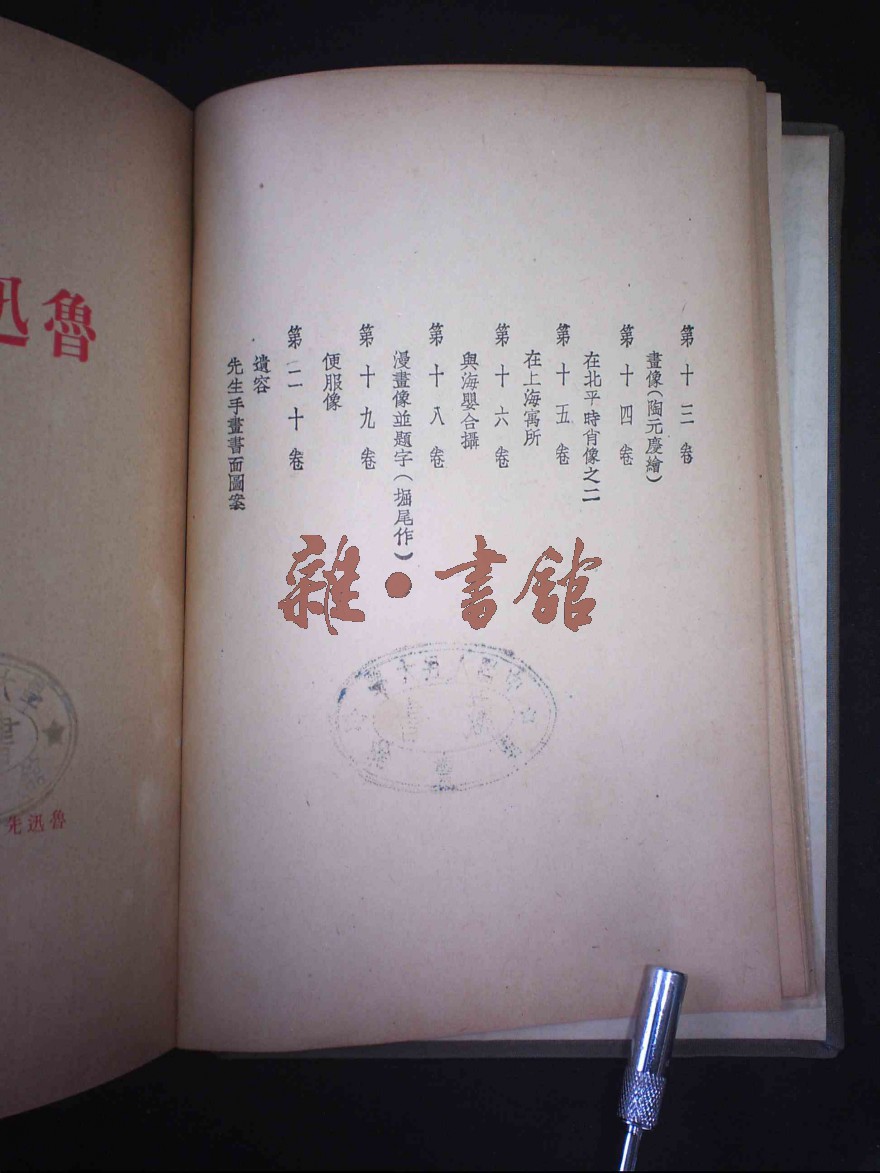 第十三卷
畫像(陶元慶繪)
第十四卷
在北平時肖像之二
第十五卷
在上海寓所
第十六卷
與海嬰合攝
第十八卷
漫畫像並題字(堀尾作)
第十九卷
便服像
第二十卷
遺容
先生手畫書面圖案
雜·書館
魯迅
魯迅先